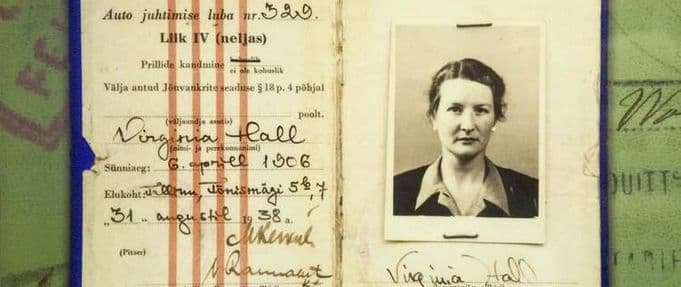 Auto juhtimise luba nr. 329.
Liik IV (neljas)
Prillide kandmine kohuslik
ei ole kohuslik
Välja antud Jõuvankrite seaduse § 18 p. 4 põhjal
poolt.
(väljaandja asutis)
Virginia Hall
(nimi- ja perekonnanimi)
Sünniaeg: 6. aprill 1906
Elukoht: Tallinn, Tõnismägi 5
"31" augustil 1938 a.
(Pitser)
Virginia Hall